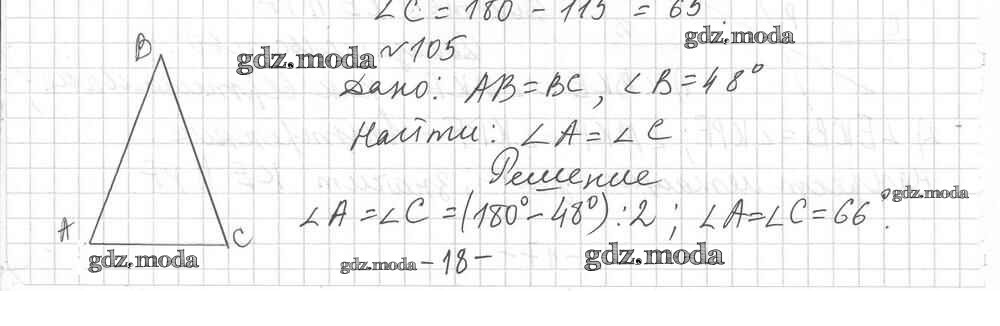 ∠C = 180 - 115 = 65
gdz.moda
B
gdz.moda
№105
Дано: AB=BC, ∠B=48°
Найти: ∠A=∠C
Решение
gdz.moda
∠A=∠C=(180°-48°):2; ∠A=∠C=66°.
A
C
gdz.moda
gdz.moda
-18-
gdz.moda